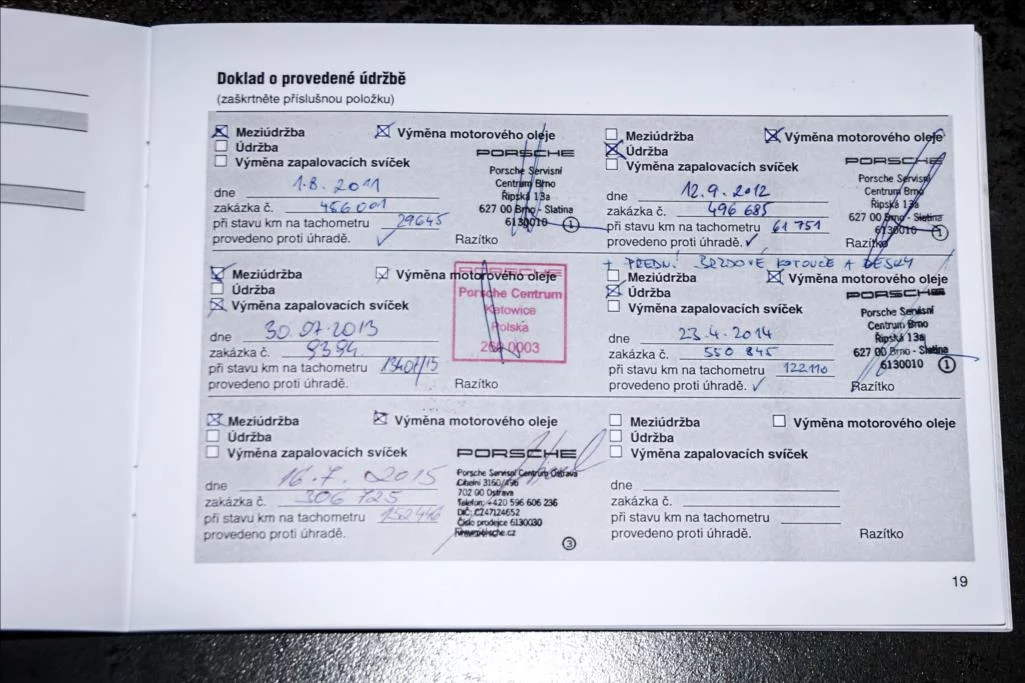 Doklad o provedené údržbě
(zaškrtněte příslušnou položku)
Meziúdržba
Výměna motorového oleje
Údržba
Výměna zapalovacích svíček
PORSCHE
Porsche Servisní
Centrum Brno
Řipská 13a
627 00 Brno - Slatina
6130010
1
dne 1.8. 2011
zakázka č. 456 001
při stavu km na tachometru 29645
provedeno proti úhradě.
Razítko
Meziúdržba
Výměna motorového oleje
Údržba
Výměna zapalovacích svíček
PORSCHE
Porsche Servisní
Centrum Brno
Řipská 13a
627 00 Brno - Slatina
6130010
1
dne 12.9. 2012
zakázka č. 496 685
při stavu km na tachometru 61 751
provedeno proti úhradě.
Razítko
+ PŘEDNÍ BRZDOVÉ KOTOUČE A DESKY
Meziúdržba
Výměna motorového oleje
Údržba
Výměna zapalovacích svíček
PORSCHE
Porsche Centrum
Katowice
Polska
260 0003
dne 30.07.2013
zakázka č. 9394
při stavu km na tachometru
provedeno proti úhradě.
Razítko
Meziúdržba
Výměna motorového oleje
Údržba
Výměna zapalovacích svíček
PORSCHE
Porsche Servisní
Centrum Brno
Řipská 13a
627 00 Brno - Slatina
6130010
1
dne 23.4. 2014
zakázka č. 550 845
při stavu km na tachometru 122110
provedeno proti úhradě.
Razítko
Meziúdržba
Výměna motorového oleje
Údržba
Výměna zapalovacích svíček
PORSCHE
Porsche Servisní Centrum Ostrava
Cihelní 3160/49b
702 00 Ostrava
Telefon: +420 596 606 236
DIČ: CZ47124652
Číslo prodejce 6130030
3
dne 16.7. 2015
zakázka č. 306 725
při stavu km na tachometru 152446
provedeno proti úhradě.
Meziúdržba
Výměna motorového oleje
Údržba
Výměna zapalovacích svíček
dne
zakázka č.
při stavu km na tachometru
provedeno proti úhradě.
Razítko
19